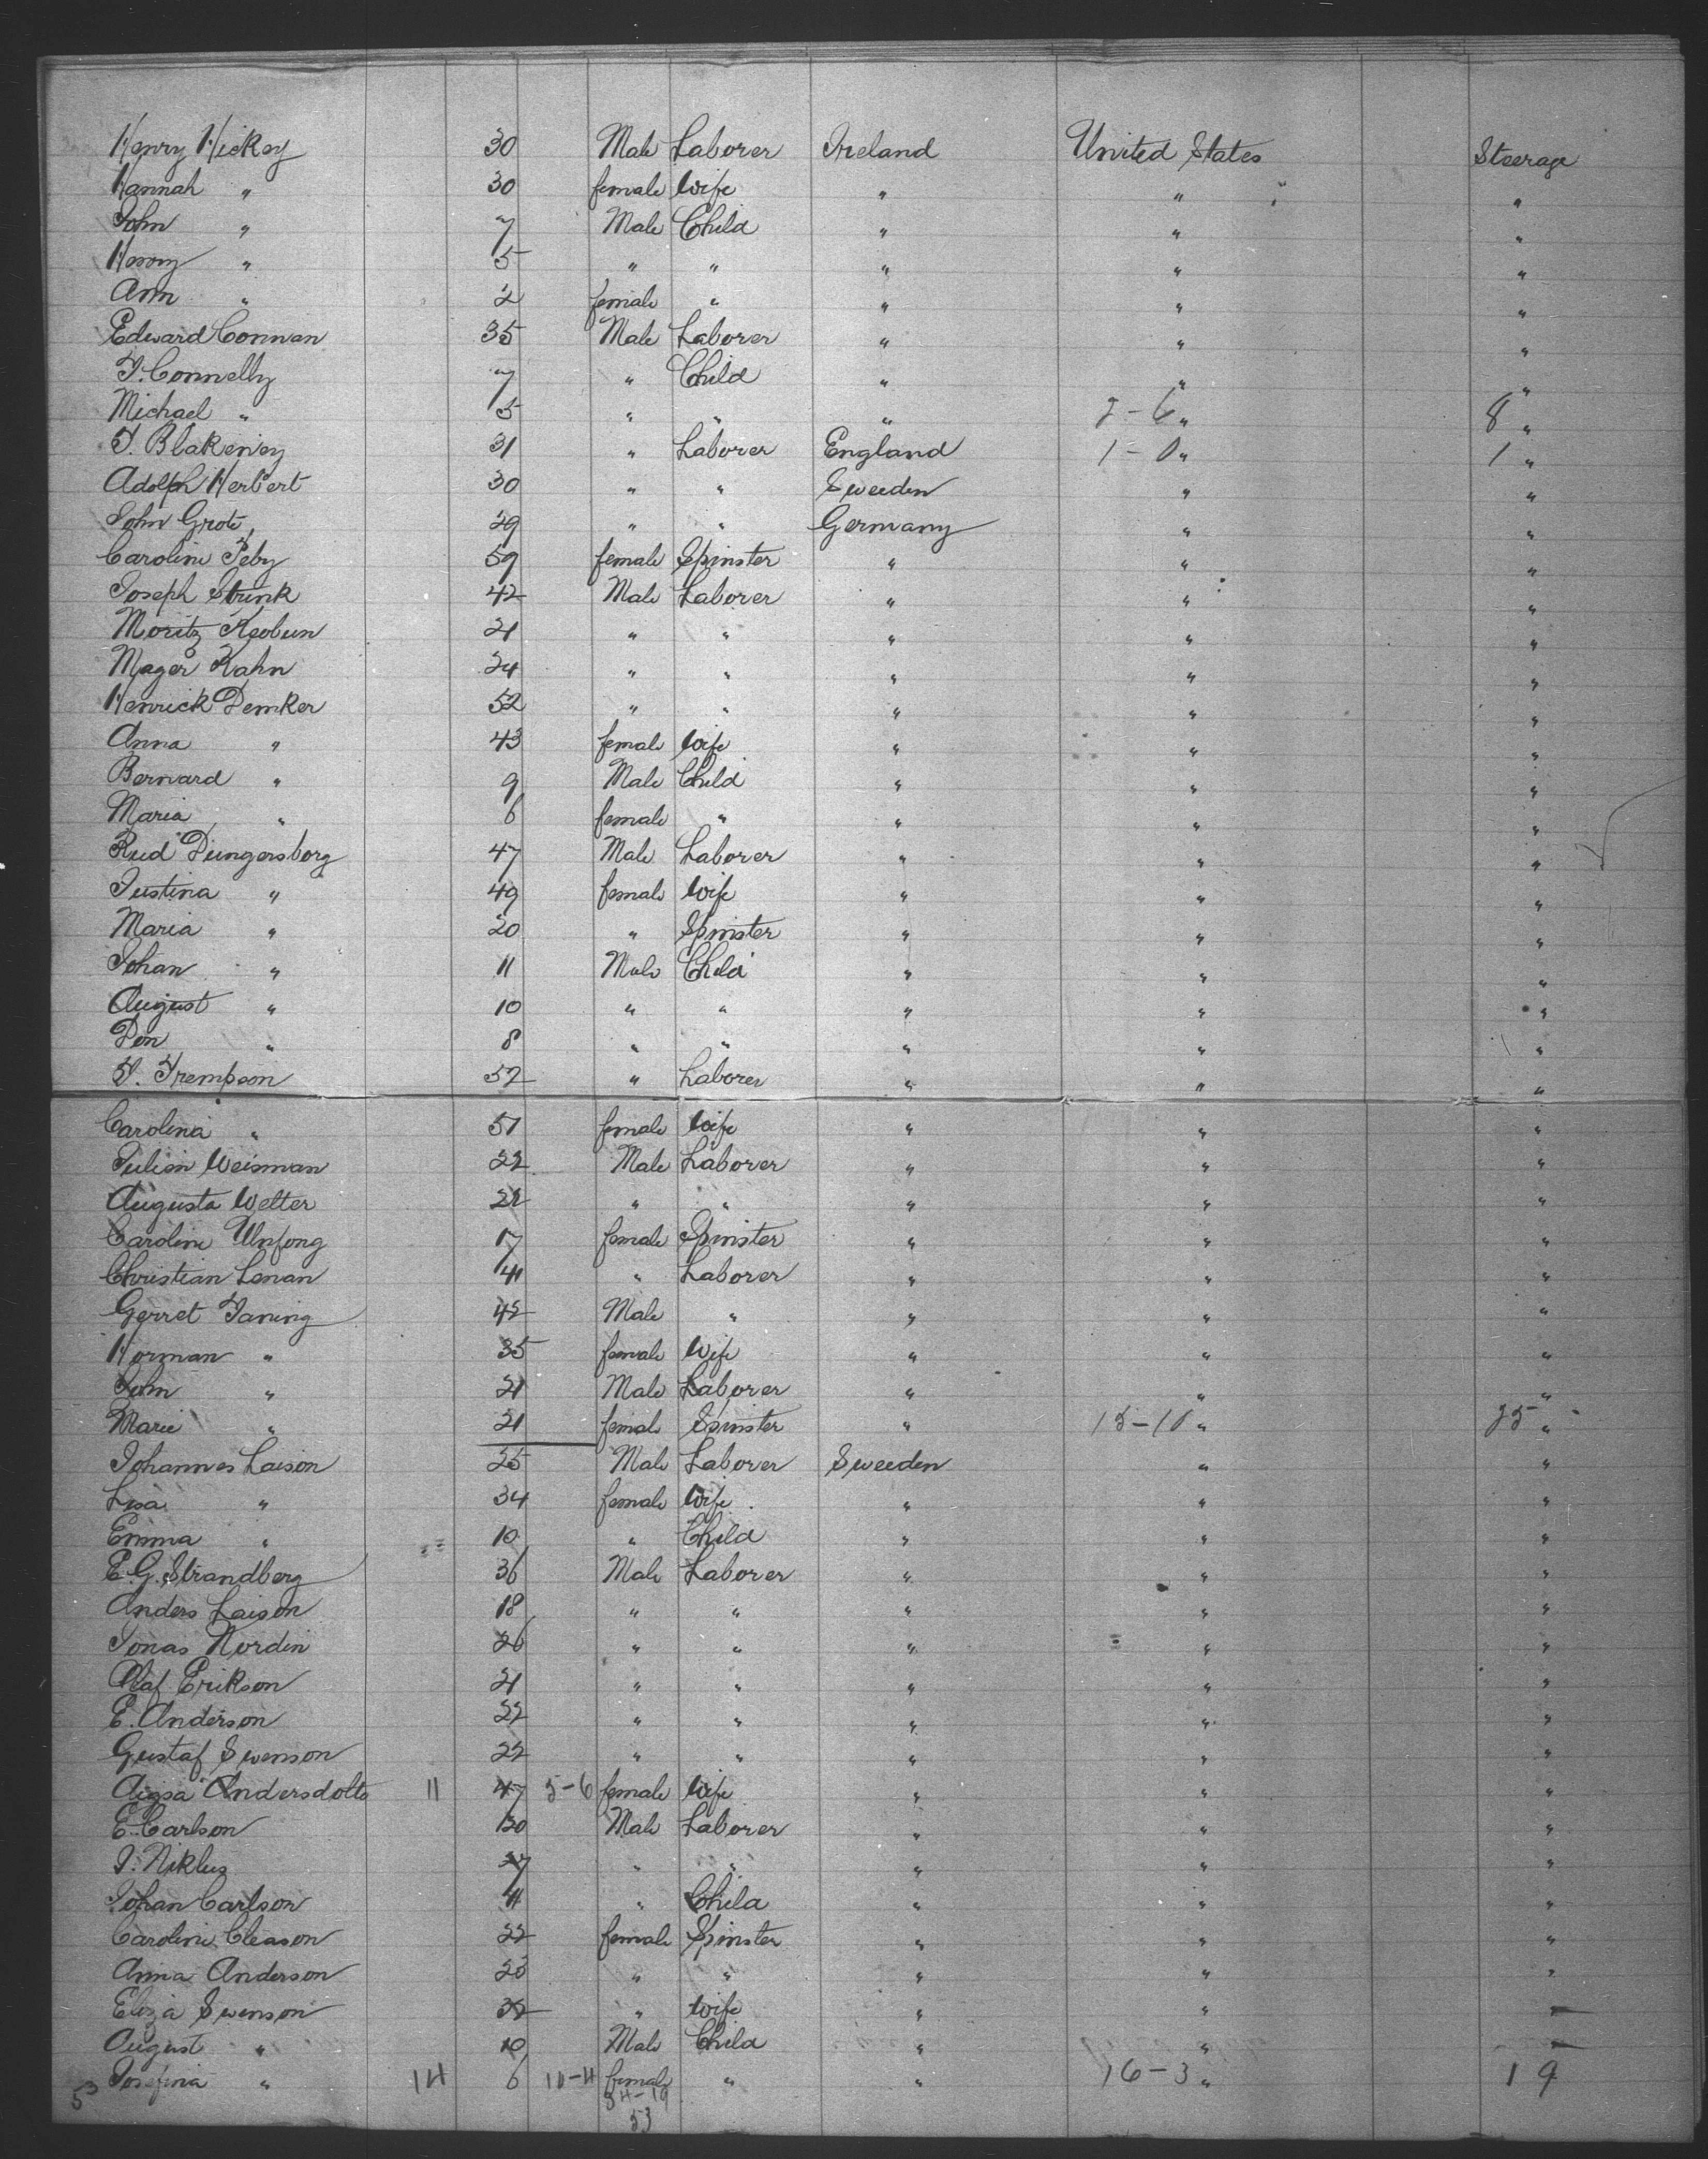 Henry Hickey 30 Male Laborer Ireland United States Steerage
Hannah " 30 female Wife " " "
John " 7 Male Child " " "
Henry " 5 " " " " "
Ann " 2 female " " " "
Edward Connan 35 Male Laborer " " "
T. Connelly 7 " Child " " "
Michael " 5 " " " 2-6 " 8 "
T. Blakeney 31 " Laborer England 1-0 " 1 "
Adolph Herbert 30 " " Sweeden " "
John Grote 29 " " Germany " "
Caroline Feby 59 female Spinster " " "
Joseph Strink 42 Male Laborer " " "
Moritz 21 " " " " "
Mager Kahn 24 " " " " "
Henrick Demker 52 " " " " "
Anna " 43 female Wife " " "
Bernard " 9 Male Child " " "
Maria " 6 female " " " "
Rud Dungersborg 47 Male Laborer " " "
Justina " 49 female Wife " " "
Maria " 20 " Spinster " " "
Johan " 11 Male Child " " "
August " 10 " " " " "
Den " 8 " " " " "
T. Trempson 52 " Laborer " " "
Carolina " 51 female Wife " " "
Julian Weisman 22 Male Laborer " " "
Augusta Welter 22 " " " " "
Caroline Unfong 17 female Spinster " " "
Christian Lenan 41 " Laborer " " "
Gerret Janing 42 Male " " " "
Horman " 35 female Wife " " "
John " 21 Male Laborer " " "
Marie " 21 female Spinster " 15-10 " 25 "
Johannes Laison 25 Male Laborer Sweeden " "
Lisa " 34 female Wife " " "
Emma " 10 " Child " " "
E. G. Strandberg 36 Male Laborer " " "
Anders Laison 18 " " " " "
Jonas Nordin 26 " " " " "
Olaf Erikson 21 " " " " "
E. Anderson 22 " " " " "
Gustaf Swenson 22 " " " " "
Aigsa Andersdolte 11 47 5-6 female Wife " " "
E. Carlson 30 Male Laborer " " "
J. Niklus 27 " " " " "
Johan Carlson 11 " Child " " "
Caroline Cleason 22 female Spinster " " "
Anna Anderson 23 " " " " "
Eliza Swenson 32 " Wife " "
August " 10 Male Child " "
53 Josefina " 14 6 10-4 female " " 16-3 " 19
34-19
53